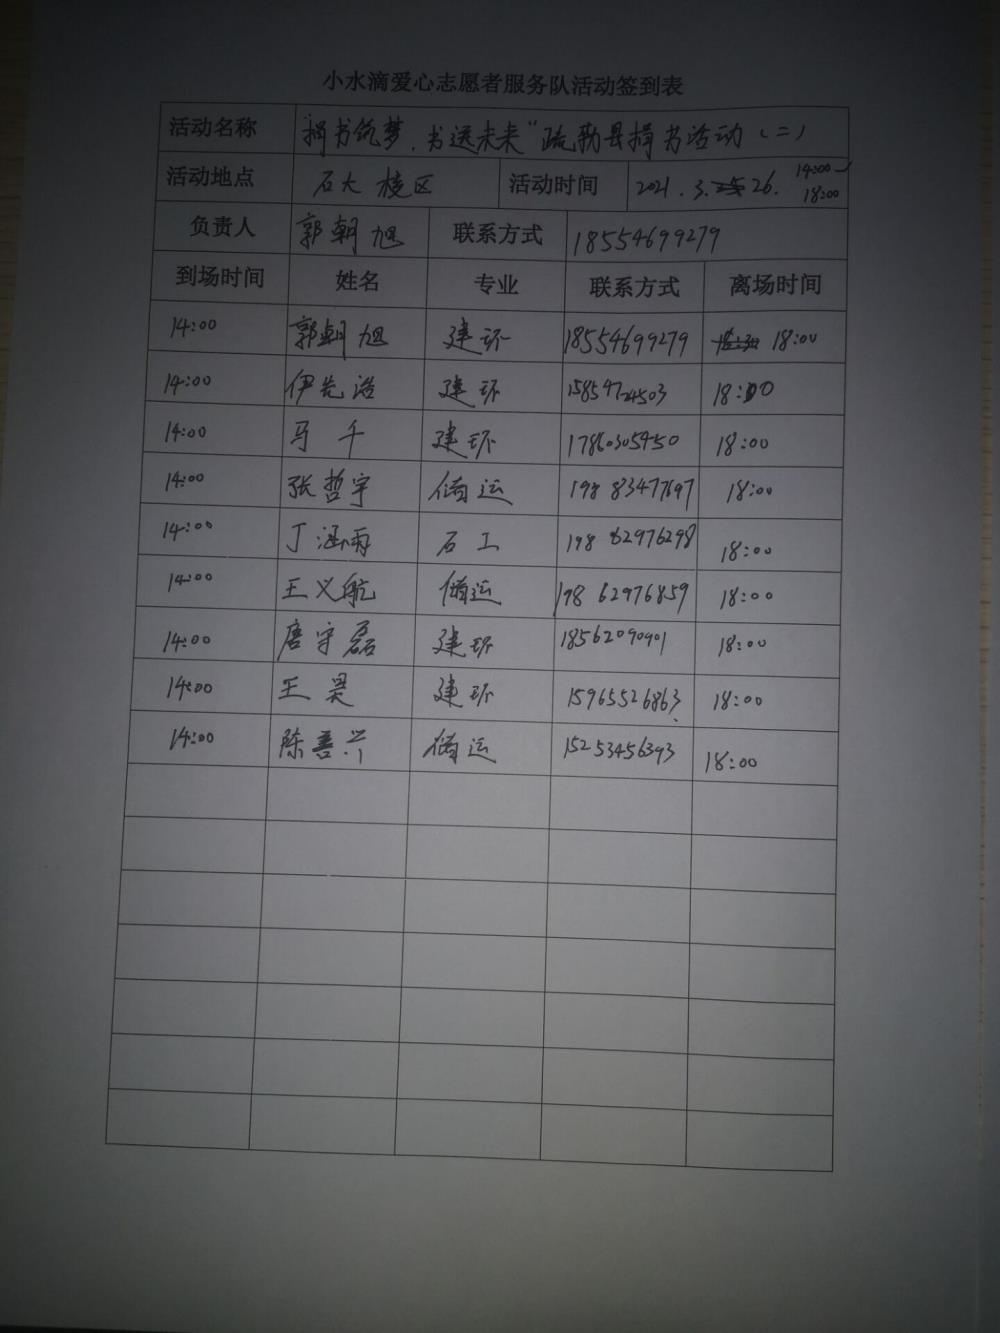 小水滴爱心志愿者服务队活动签到表
活动名称 "捐书筑梦,书送未来"疏勒县捐书活动(二)
活动地点 石大校区 活动时间 2021.3.26. 14:00-18:00
负责人 郭朝旭 联系方式 18554699279
到场时间 姓名 专业 联系方式 离场时间
14:00 郭朝旭 建环 18554699279 18:00
14:00 伊先浩 建环 15854724503 18:00
14:00 马千 建环 17860305450 18:00
14:00 张哲宇 储运 198 83477697 18:00
14:00 丁涵雨 石工 198 62976298 18:00
14:00 王义航 储运 198 62976859 18:00
14:00 唐守磊 建环 18562090901 18:00
14:00 王昊 建环 15965526863 18:00
14:00 陈善兴 储运 15253456393 18:00